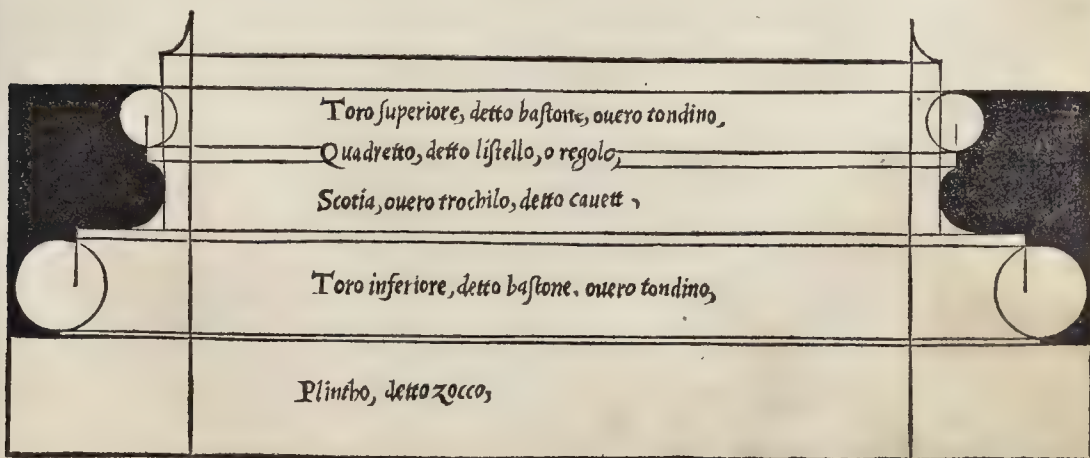 Toro ſuperiore, detto baſtone, ouero tondino,
Quadretto, detto liſtello, o regolo,
Scotia, ouero trochilo, detto cauett ,
Toro inferiore, detto baſtone, ouero tondino,
Plintho, detto zocco,